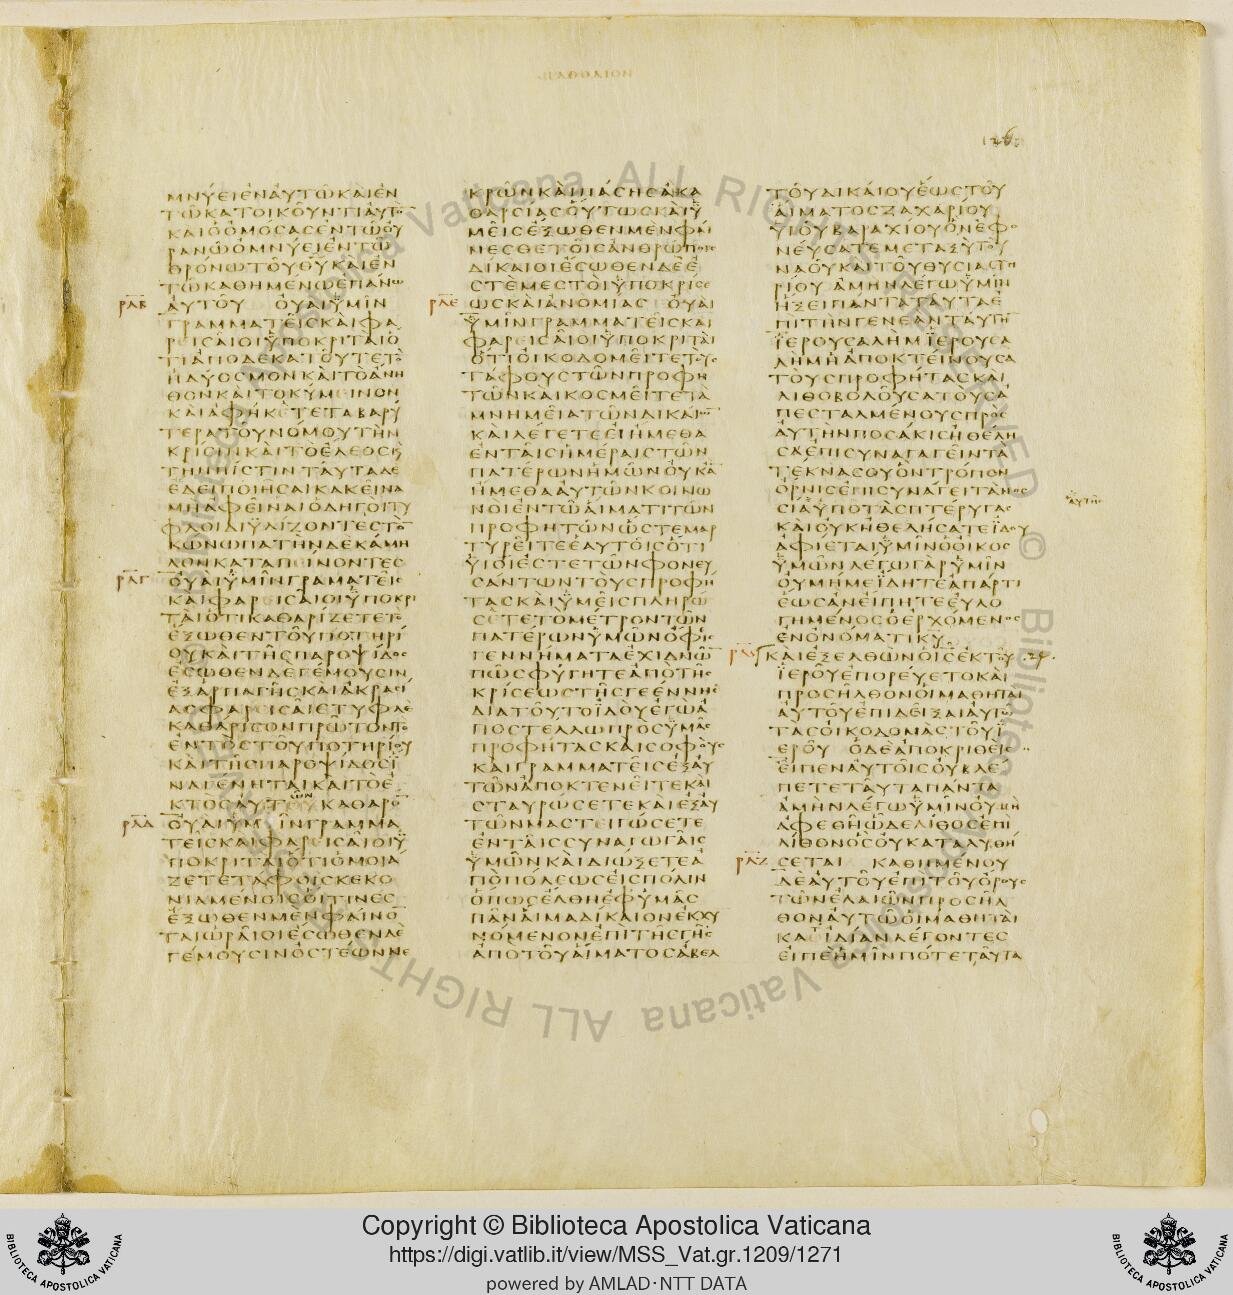 126
ΜΝΥΕΙΕΝΑΥΤΩΚΑΙΕΝ
ΤΩΚΑΤΟΙΚΟΥΝΤΙΑΥΤΟ̅
ΚΑΙΟΟΜΟϹΑϹΕΝΤΩΟΥ
ΡΑΝΩΟΜΝΥΕΙΕΝΤΩ
ΘΡΟΝΩΤΟΥΘ̅Υ̅ΚΑΙΕΝ
ΤΩΚΑΘΗΜΕΝΩΕΠΑΝΩ
ΡΛΒ ΑΥΤΟΥ ΟΥΑΙΫΜΙΝ
ΓΡΑΜΜΑΤΕΙϹΚΑΙΦΑ
ΡΕΙϹΑΙΟΙΫΠΟΚΡΙΤΑΙΟ
ΤΙΑΠΟΔΕΚΑΤΟΥΤΕΤΟ
ΗΔΥΟϹΜΟΝΚΑΙΤΟΑΝΗ
ΘΟΝΚΑΙΤΟΚΥΜΕΙΝΟΝ
ΚΑΙΑΦΗΚΕΤΕΤΑΒΑΡΥ
ΤΕΡΑΤΟΥΝΟΜΟΥΤΗΝ
ΚΡΙϹΙΝΚΑΙΤΟΕΛΕΟϹΚ
ΤΗΝΠΙϹΤΙΝΤΑΥΤΑΔΕ
ΕΔΕΙΠΟΙΗϹΑΙΚΑΚΕΙΝΑ
ΜΗΑΦΕΙΝΑΙΟΔΗΓΟΙΤΥ
ΦΛΟΙΔΙΫΛΙΖΟΝΤΕϹΤΟ̅
ΚΩΝΩΠΑΤΗΝΔΕΚΑΜΗ
ΛΟΝΚΑΤΑΠΕΙΝΟΝΤΕϹ
ΡΛΓ ΟΥΑΙΫΜΙΝΓΡΑΜΑΤΕΙϹ
ΚΑΙΦΑΡΕΙϹΑΙΟΙΫΠΟΚΡΙ
ΤΑΙΟΤΙΚΑΘΑΡΙΖΕΤΕΤΟ
ΕΞΩΘΕΝΤΟΥΠΟΤΗΡΙ
ΟΥΚΑΙΤΗϹΠΑΡΟΨΙΔΟϹ
ΕϹΩΘΕΝΔΕΓΕΜΟΥϹΙΝ
ΕΞΑΡΠΑΓΗϹΚΑΙΑΚΡΑϹΙ
ΑϹΦΑΡΕΙϹΑΙΕΤΥΦΛΕ
ΚΑΘΑΡΙϹΟΝΠΡΩΤΟΝΤΟ
ΕΝΤΟϹΤΟΥΠΟΤΗΡΙΟΥ
ΚΑΙΤΗϹΠΑΡΟΨΙΔΟϹΪ
ΝΑΓΕΝΗΤΑΙΚΑΙΤΟΕ
ΚΤΟϹΑΥΤΟΥΚΑΘΑΡΟ̅
ΡΛΔ ΟΥΑΙΫΜΙΝΓΡΑΜΜΑ
ΤΕΙϹΚΑΙΦΑΡΕΙϹΑΙΟΙΫ
ΠΟΚΡΙΤΑΙΟΤΙΟΜΟΙΑ
ΖΕΤΕΤΑΦΟΙϹΚΕΚΟ
ΝΙΑΜΕΝΟΙϹΟΙΤΙΝΕϹ
ΕΞΩΘΕΝΜΕΝΦΑΙΝΟ̅
ΤΑΙΩΡΑΙΟΙΕϹΩΘΕΝΔΕ
ΓΕΜΟΥϹΙΝΟϹΤΕΩΝΝΕ
ΚΡΩΝΚΑΙΠΑϹΗϹΑΚΑ
ΘΑΡϹΙΑϹΟΥΤΩϹΚΑΙΫ
ΜΕΙϹΕΞΩΘΕΝΜΕΝΦΑΙ
ΝΕϹΘΕΤΟΙϹΑΝΘΡΩΠΟΙϹ
ΔΙΚΑΙΟΙΕϹΩΘΕΝΔΕΕ
ϹΤΕΜΕϹΤΟΙΫΠΟΚΡΙϹΕ
ΡΛΕ ΩϹΚΑΙΑΝΟΜΙΑϹ ΟΥΑΙ
ΫΜΙΝΓΡΑΜΜΑΤΕΙϹΚΑΙ
ΦΑΡΕΙϹΑΙΟΙΫΠΟΚΡΙΤΑΙ
ΟΤΙΟΙΚΟΔΟΜΕΙΤΕΤΟΥϹ
ΤΑΦΟΥϹΤΩΝΠΡΟΦΗ
ΤΩΝΚΑΙΚΟϹΜΕΙΤΕΤΑ
ΜΝΗΜΕΙΑΤΩΝΔΙΚΑΙΩ̅
ΚΑΙΛΕΓΕΤΕΕΙΗΜΕΘΑ
ΕΝΤΑΙϹΗΜΕΡΑΙϹΤΩΝ
ΠΑΤΕΡΩΝΗΜΩΝΟΥΚΑ̅
ΗΜΕΘΑΑΥΤΩΝΚΟΙΝΩ
ΝΟΙΕΝΤΩΑΙΜΑΤΙΤΩΝ
ΠΡΟΦΗΤΩΝΩϹΤΕΜΑΡ
ΤΥΡΕΙΤΕΕΑΥΤΟΙϹΟΤΙ
ΥΙΟΙΕϹΤΕΤΩΝΦΟΝΕΥ
ϹΑΝΤΩΝΤΟΥϹΠΡΟΦΗ
ΤΑϹΚΑΙΫΜΕΙϹΠΛΗΡΩ
ϹΕΤΕΤΟΜΕΤΡΟΝΤΩΝ
ΠΑΤΕΡΩΝΥΜΩΝΟΦΙϹ
ΓΕΝΝΗΜΑΤΑΕΧΙΔΝΩ̅
ΠΩϹΦΥΓΗΤΕΑΠΟΤΗϹ
ΚΡΙϹΕΩϹΤΗϹΓΕΕΝΝΗϹ
ΔΙΑΤΟΥΤΟΪΔΟΥΕΓΩΑ
ΠΟϹΤΕΛΛΩΠΡΟϹΫΜΑϹ
ΠΡΟΦΗΤΑϹΚΑΙϹΟΦΟΥϹ
ΚΑΙΓΡΑΜΜΑΤΕΙϹΕΞΑΥ
ΤΩΝΑΠΟΚΤΕΝΕΙΤΕΚΑΙ
ϹΤΑΥΡΩϹΕΤΕΚΑΙΕΞΑΥ
ΤΩΝΜΑϹΤΕΙΓΩϹΕΤΕ
ΕΝΤΑΙϹϹΥΝΑΓΩΓΑΙϹ
ΫΜΩΝΚΑΙΔΙΩΞΕΤΕΑ
ΠΟΠΟΛΕΩϹΕΙϹΠΟΛΙΝ
ΟΠΩϹΕΛΘΗΕΦΥΜΑϹ
ΠΑΝΑΙΜΑΔΙΚΑΙΟΝΕΚΧΥ
ΝΟΜΕΝΟΝΕΠΙΤΗϹΓΗϹ
ΑΠΟΤΟΥΑΙΜΑΤΟϹΑΒΕΛ
ΤΟΥΔΙΚΑΙΟΥΕΩϹΤΟΥ
ΑΙΜΑΤΟϹΖΑΧΑΡΙΟΥ
ΥΙΟΥΒΑΡΑΧΙΟΥΟΝΕΦΟ
ΝΕΥϹΑΤΕΜΕΤΑΞΥΤΟΥ
ΝΑΟΥΚΑΙΤΟΥΘΥϹΙΑϹΤΗ
ΡΙΟΥ ΑΜΗΝΛΕΓΩΫΜΙΝ
ΗΞΕΙΠΑΝΤΑΤΑΥΤΑΕ
ΠΙΤΗΝΓΕΝΕΑΝΤΑΥΤΗ̅
ΪΕΡΟΥϹΑΛΗΜΪΕΡΟΥϹΑ
ΛΗΜΗΑΠΟΚΤΕΙΝΟΥϹΑ
ΤΟΥϹΠΡΟΦΗΤΑϹΚΑΙ
ΛΙΘΟΒΟΛΟΥϹΑΤΟΥϹΑ
ΠΕϹΤΑΛΜΕΝΟΥϹΠΡΟϹ
ΑΥΤΗΝΠΟϹΑΚΙϹΗΘΕΛΗ
ϹΑΕΠΙϹΥΝΑΓΑΓΕΙΝΤΑ
ΤΕΚΝΑϹΟΥΟΝΤΡΟΠΟΝ
ΟΡΝΙϹΕΠΙϹΥΝΑΓΕΙΤΑΝΟϹ
ϹΙΑΫΠΟΤΑϹΠΤΕΡΥΓΑϹ
ΚΑΙΟΥΚΗΘΕΛΗϹΑΤΕΪΔΟΥ
ΑΦΙΕΤΑΙΫΜΙΝΟΟΙΚΟϹ
ΫΜΩΝΛΕΓΩΓΑΡΫΜΙΝ
ΟΥΜΗΜΕΪΔΗΤΕΑΠΑΡΤΙ
ΕΩϹΑΝΕΙΠΗΤΕΕΥΛΟ
ΓΗΜΕΝΟϹΟΕΡΧΟΜΕΝΟϹ
ΕΝΟΝΟΜΑΤΙΚ̅Υ̅
ΡΛϚ ΚΑΙΕΞΕΛΘΩΝΟΙ̅Ϲ̅ΕΚΤΟΥ .24.
ΪΕΡΟΥΕΠΟΡΕΥΕΤΟΚΑΙ
ΠΡΟϹΗΛΘΟΝΟΙΜΑΘΗΤΑΙ
ΑΥΤΟΥΕΠΙΔΕΙΞΑΙΑΥΤΩ
ΤΑϹΟΙΚΟΔΟΜΑϹΤΟΥΪ
ΕΡΟΥ ΟΔΕΑΠΟΚΡΙΘΕΙϹ
ΕΙΠΕΝΑΥΤΟΙϹΟΥΒΛΕ
ΠΕΤΕΤΑΥΤΑΠΑΝΤΑ
ΑΜΗΝΛΕΓΩΫΜΙΝΟΥΜΗ
ΑΦΕΘΗΩΔΕΛΙΘΟϹΕΠΙ
ΛΙΘΟΝΟϹΟΥΚΑΤΑΛΥΘΗ
ΡΛΖ ϹΕΤΑΙ ΚΑΘΗΜΕΝΟΥ
ΔΕΑΥΤΟΥΕΠΙΤΟΥΟΡΟΥϹ
ΤΩΝΕΛΑΙΩΝΠΡΟϹΗΛ
ΘΟΝΑΥΤΩΟΙΜΑΘΗΤΑΙ
ΚΑΘΙΔΙΑΝΛΕΓΟΝΤΕϹ
ΕΙΠΕΗΜΙΝΠΟΤΕΤΑΥΤΑ
Copyright © Biblioteca Apostolica Vaticana
https://digi.vatlib.it/view/MSS_Vat.gr.1209/1271
powered by AMLAD·NTT DATA
BIBLIOTECA APOSTOLICA VATICANA
BIBLIOTECA APOSTOLICA VATICANA